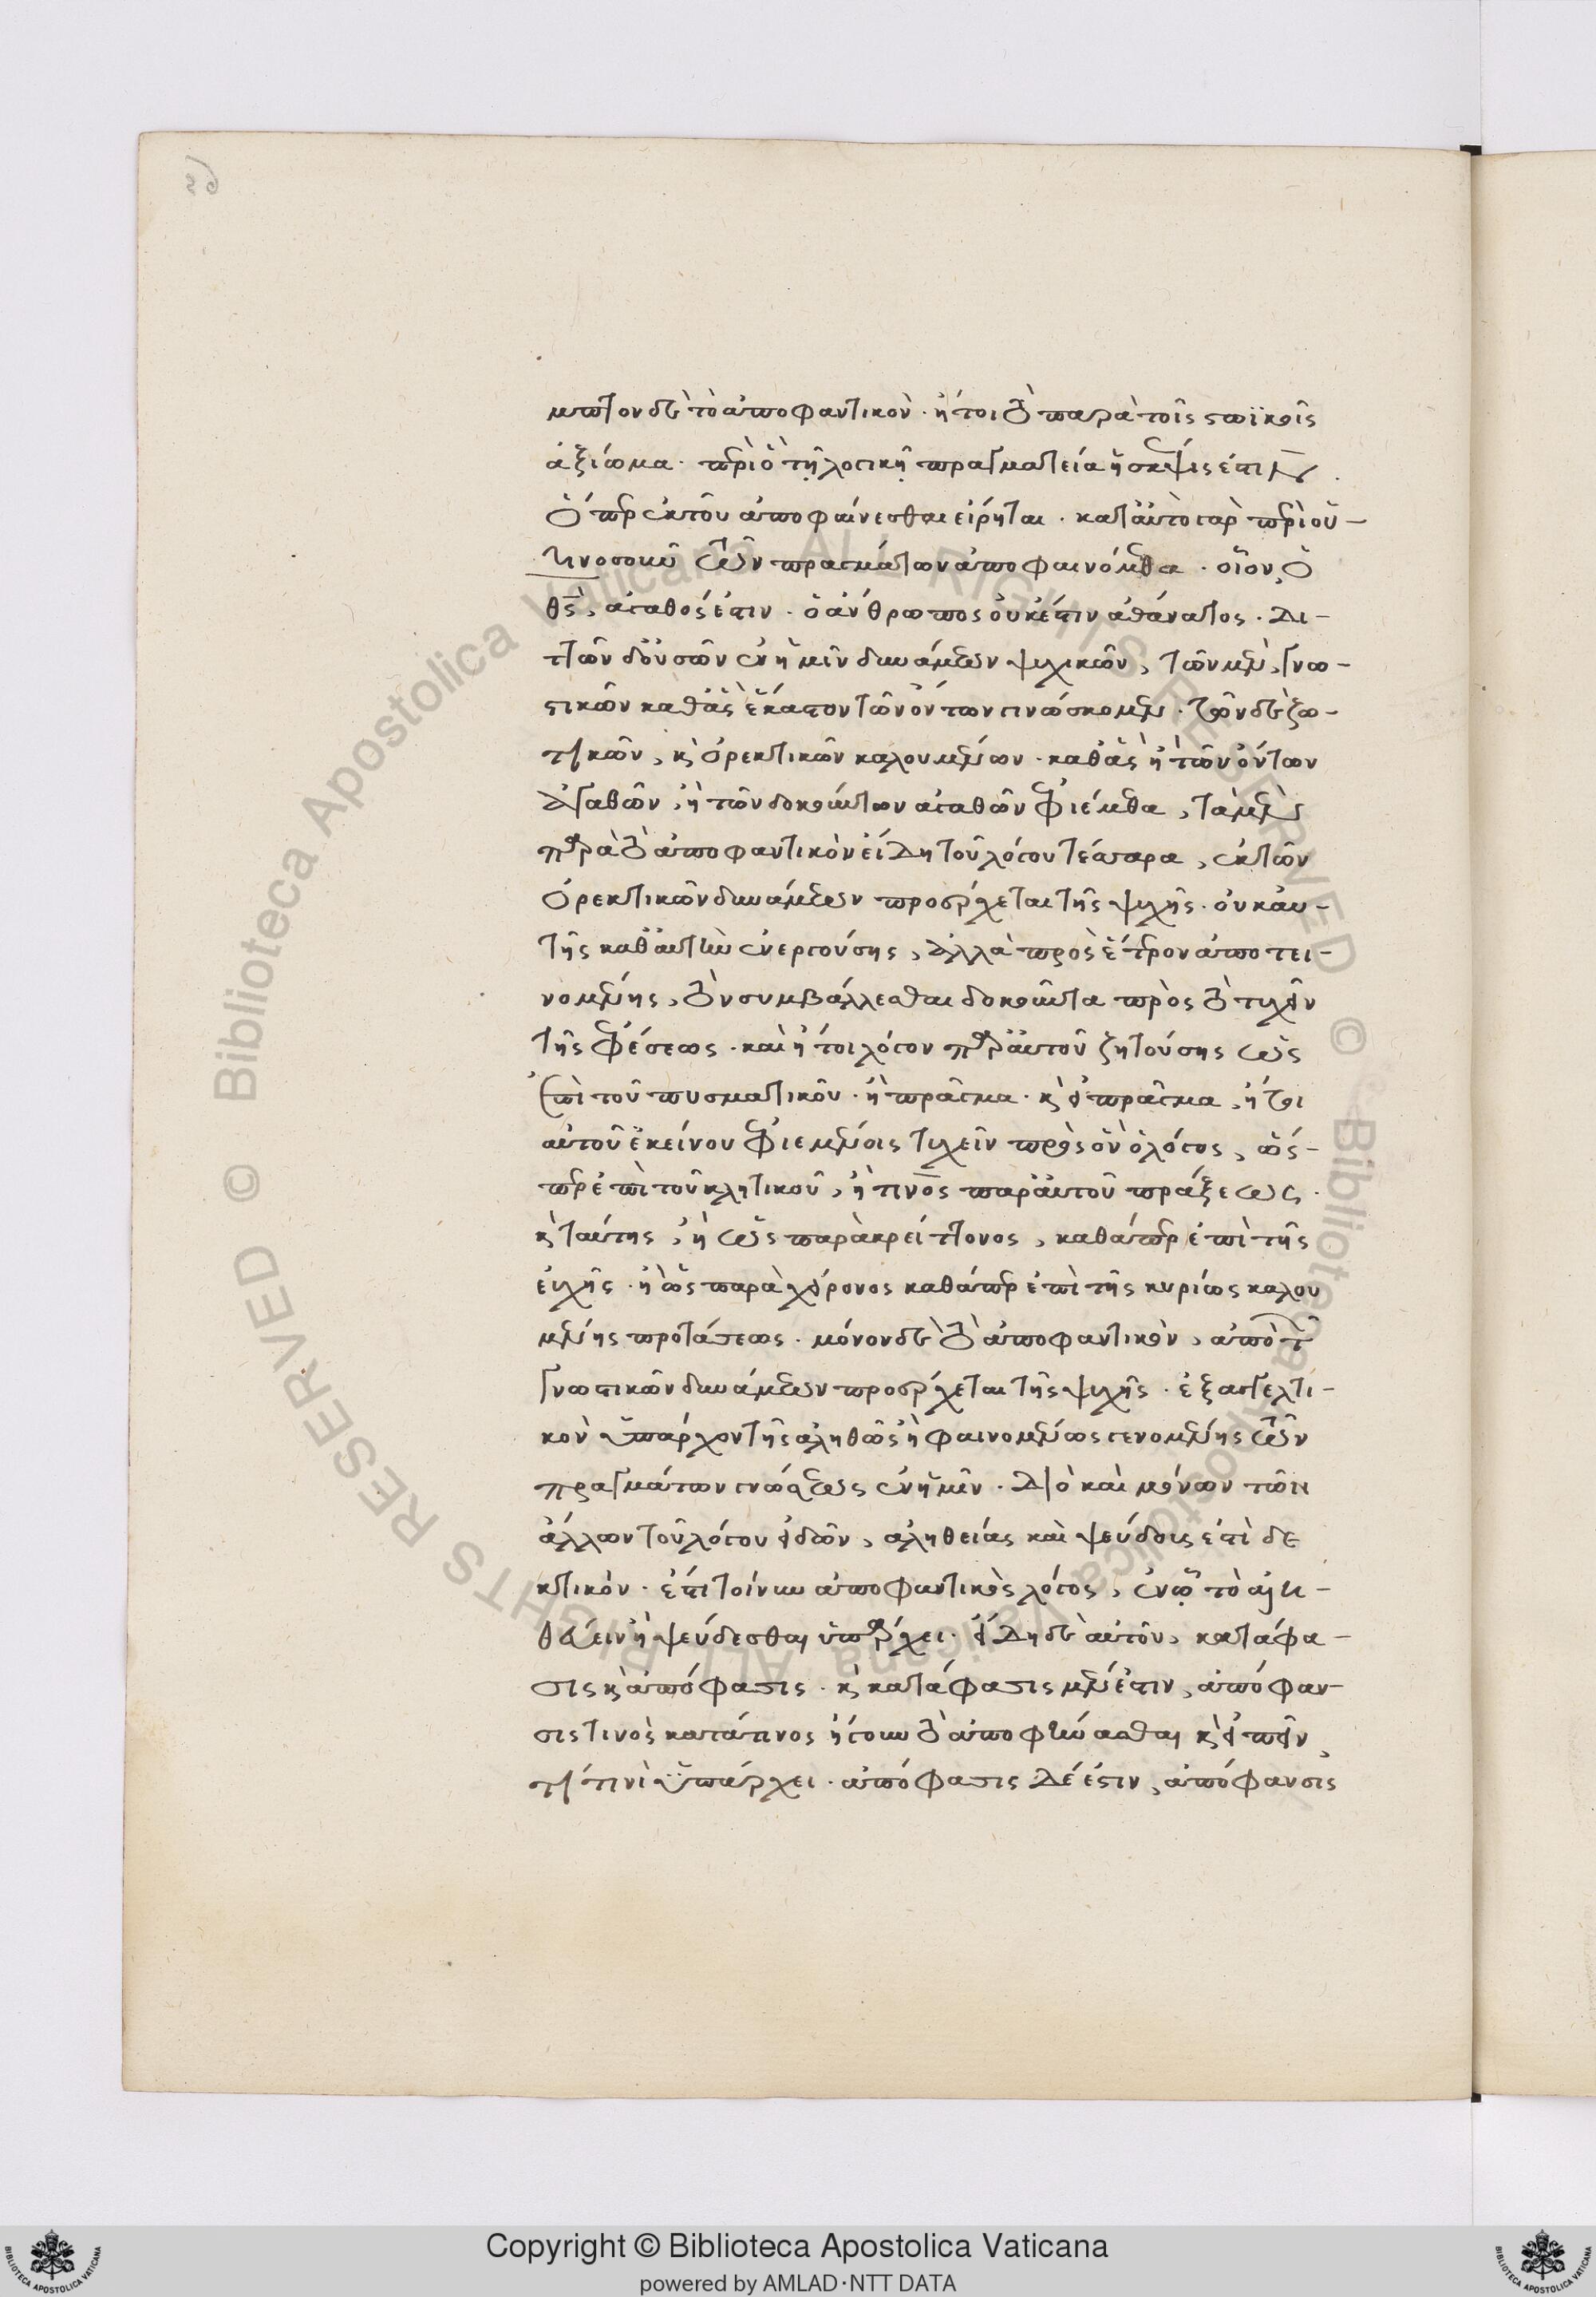 μπτον δὲ τὸ ἀποφαντικὸν. ἤτοι τὸ παρὰ τοῖς στωϊκοῖς
ἀξίωμα. περὶ ὃ τῇ λογικῇ πραγματεία ἡ σκέψις ἐστὶ
ὅπερ ἐκ τοῦ ἀποφαίνεσθαι εἴρηται. κατ' αὐτὸ γὰρ περὶ οὗ-
τινοσοῦν τῶν πραγμάτων ἀποφαινόμεθα. οἷον, ὁ
θς̅, ἀγαθός ἐστιν. ὁ ἄνθρωπος οὐκ ἔστιν ἀθάνατος. Δι-
τῶν δ' οὐσῶν ἐν ἡμῖν δυνάμεων ψυχικῶν, τῶν μὲν, γνω-
στικῶν καθ' ἃς ἕκαστον τῶν ὄντων γινώσκομεν. τῶν δὲ ζω-
τικῶν, κ̀ ὀρεκτικῶν καλουμένων. καθ' ἃς ἢ τῶν ὄντων
ἀγαθῶν, ἢ τῶν δοκούντων ἀγαθῶν ἐφιέμεθα, τὰ μὲν
παρὰ τὸ ἀποφαντικὸν εἴδη τοῦ λόγου τέσσαρα, ἐκ τῶν
ὀρεκτικῶν δυνάμεων προσέρχεται τῆς ψυχῆς. οὐκ αὐ-
τῆς καθ' αὑτὴν ἐνεργούσης, ἀλλὰ πρὸς ἕτερον ἀποτει-
νομένης, τὸν συμβάλλεσθαι δοκοῦντα πρὸς τὸ τυχεῖν
τῆς ἐφέσεως. καὶ ἤτοι λόγον παρ' αὐτοῦ ζητούσης ὡς
ἐπὶ τοῦ πυσματικοῦ. ἢ πρᾶγμα. κ̀ εἰ πρᾶγμα, ἤτοι
αὐτοῦ ἐκείνου ἐφιεμένοις τυχεῖν πρὸς ὃν ὁ λόγος, ὥσ-
περ ἐπὶ τοῦ κλητικοῦ, ἤ τινος παρ' αὐτοῦ πράξεως.
κ̀ ταύτης, ἢ ὡς παρὰ κρείττονος, καθάπερ ἐπὶ τῆς
εὐχῆς. ἢ ὡς παρὰ χείρονος καθάπερ ἐπὶ τῆς κυρίως καλου
μένης προστάξεως. μόνον δὲ τὸ ἀποφαντικὸν, ἀπὸ τῶν
γνωστικῶν δυνάμεων προσέρχεται τῆς ψυχῆς. ἐξαγγελτι-
κὸν ὑπάρχον τῆς ἀληθῶς ἢ φαινομένως γενομένης τῶν
πραγμάτων γνώσεως ἐν ἡμῖν. Διὸ καὶ μόνων τῶν
ἄλλων τοῦ λόγου εἰδῶν, ἀληθείας καὶ ψεύδους ἐστὶ δε
κτικόν. ἔστι τοίνυν ἀποφαντικὸς λόγος, ἐν ᾧ τὸ ἀλη-
θεύειν ἢ ψεύδεσθαι ὑπάρχει. εἴδη δὲ αὐτοῦ, κατάφα-
σις κ̀ ἀπόφασις. κ̀ κατάφασις μέν ἐστιν, ἀπόφαν-
σις τινὸς κατά τινος ἤγουν τὸ ἀποφήνασθαι κ̀ εἰπεῖν,
τί τινὶ ὑπάρχει. ἀπόφασις δέ ἐστιν, ἀπόφανσις